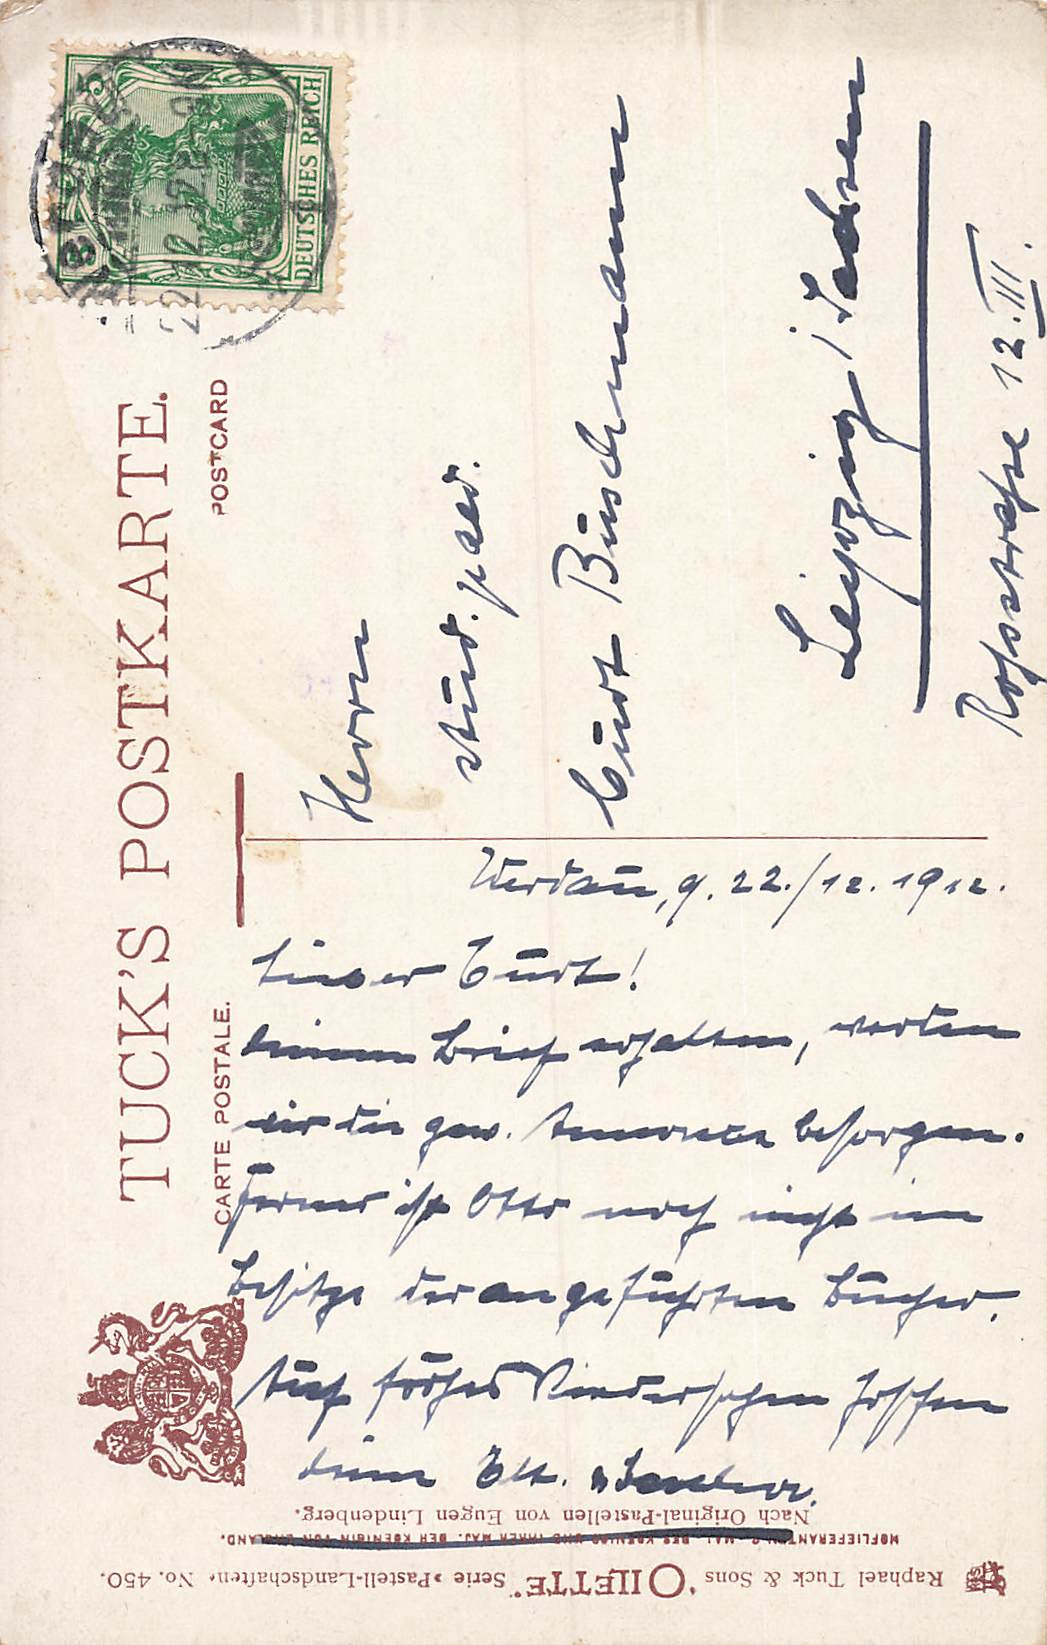 TUCK'S POSTKARTE.
CARTE POSTALE.
POSTCARD
DEUTSCHES REICH
5
22.12.12.
Herrn
stud. paed.
Curt Buschmann
Leipzig i/Sachsen
Roßstraße 12.III.
Werdau, d. 22./12. 1912.
Lieber Curt!
Deinen Brief erhalten, werden
wir die gew. Annonce besorgen.
Ferner ist Otto noch nicht im
Besitze der angeführten Bücher.
Auf frohes Wiedersehen hoffen
deine Elt. u
Nach Original-Pastellen von Eugen Lindenberg.
HOFLIEFERANTEN S. MAJ. DES KOENIGS UND IHRER MAJ. DER KOENIGIN VON ENGLAND.
Raphael Tuck & Sons "OILETTE" Serie »Pastell-Landschaften« No. 450.